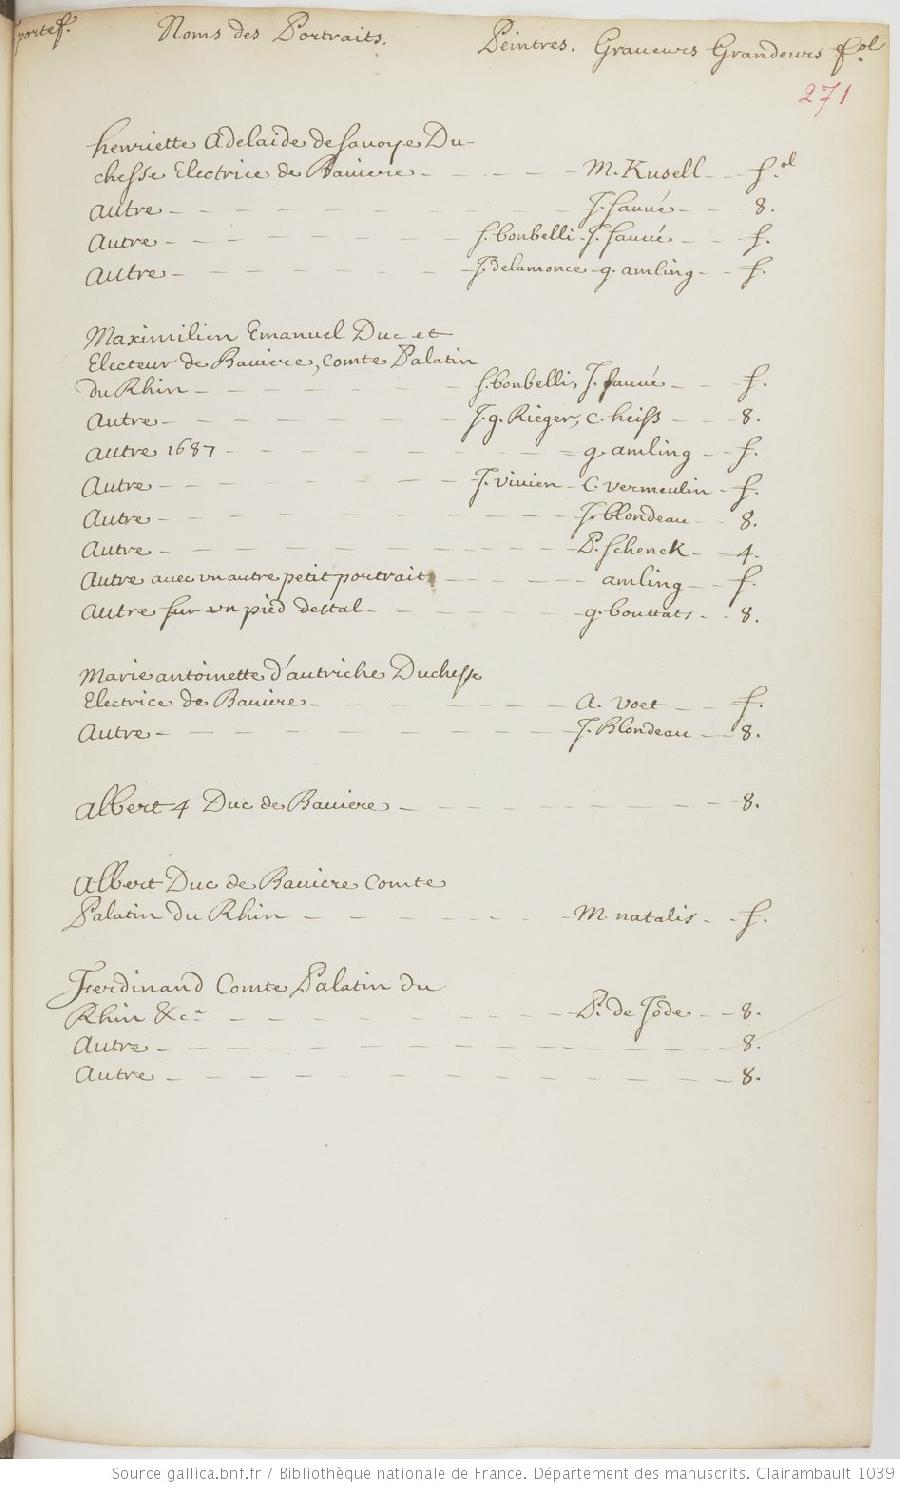 portef. Noms des Portraits. Peintres. Graveurs Grandeurs fol
271
henriette Adelaide de Savoye Du-
chesse Electrice de Baviere - - - - M. Kusell - - f.ol
autre - - - - J. Sauvé - - 8.
Autre - - - - S. bonbelli J. Sauvé - - f.
Autre - - - - J. delamonce g. amling - - f.
Maximilien Emanuel Duc et
Electeur de Baviere, comte Palatin
du Rhin - - - - S. bonbelli, J. Sauvé - - f.
Autre - - - - J. g. Rieger, c. heiss - - 8.
autre 1687 - - - - g. amling - - f.
Autre - - - - J. vivien - C. vermeulin - f.
Autre - - - - J. blondeau - - 8.
Autre - - - - P. Schenck - - 4.
Autre avec un autre petit portrait - - - - amling - - f.
autre sur un pied destal - - - - g. bouttats - - 8.
Marie antoinette d'autriche Duchesse
Electrice de Baviere - - - - A. voet - - f.
Autre - - - - J. Blondeau - - 8.
albert 4 Duc de Baviere - - - - 8.
albert Duc de Baviere Comte
Palatin du Rhin - - - - M. natalis - - f.
Ferdinand Comte Palatin du
Rhin &ca - - - - P. de Jode - - 8.
Autre - - - - 8.
Autre - - - - 8.
Source gallica.bnf.fr / Bibliothèque nationale de France. Département des manuscrits. Clairambault 1039